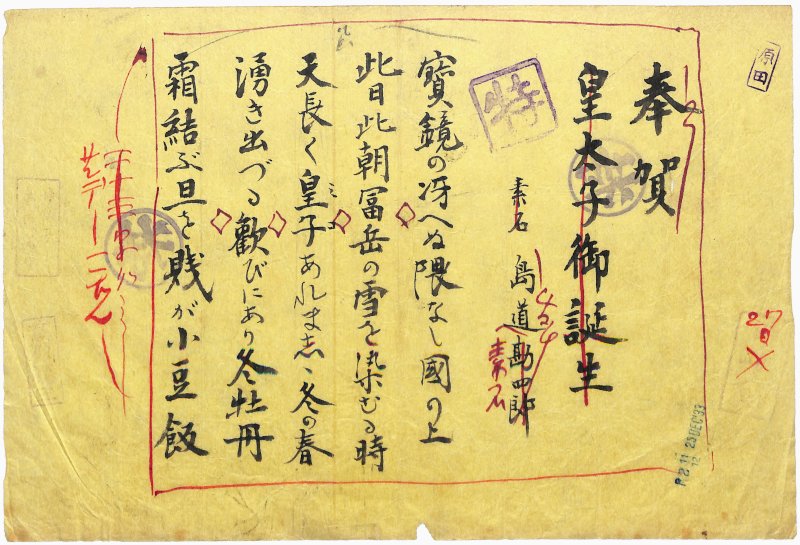 奉賀
皇太子御誕生
素石 島道勘四郎
素石
寶鏡の冴へぬ隈なし國の上
此日此朝冨岳の雪を染むる時
天長く皇子あれましゝ冬の春
湧き出づる歓びにあり冬牡丹
霜結ぶ旦を賎が小豆飯
特
原田
27
日
23 DEC 33